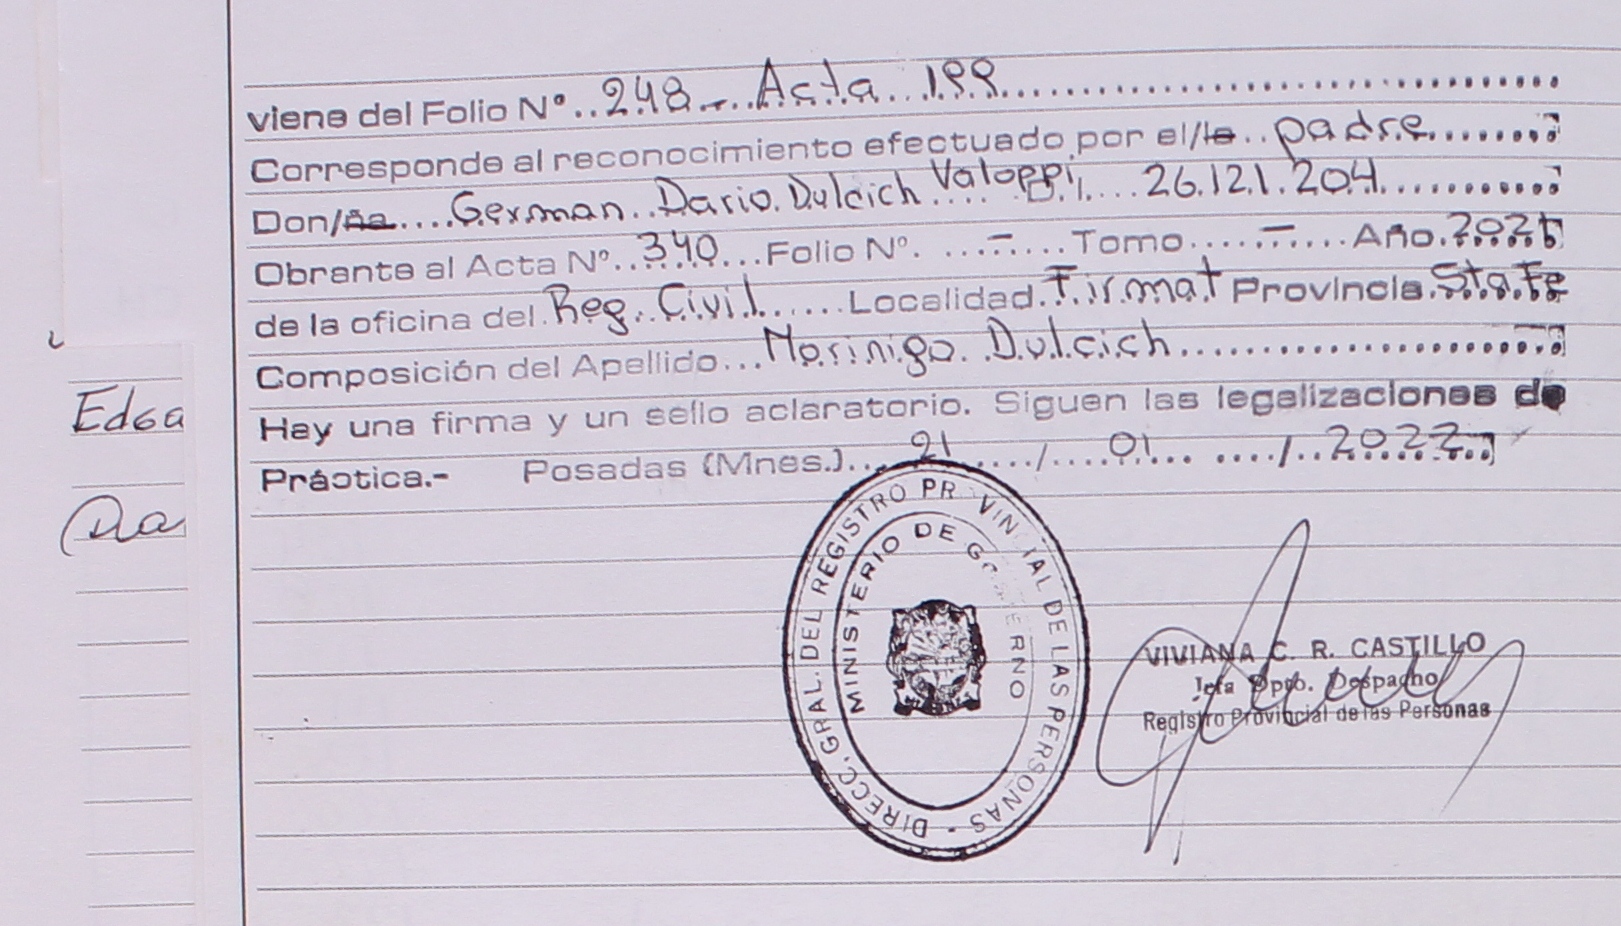 viene del Folio Nº..248.-..Acta..199..........
Corresponde al reconocimiento efectuado por el/la..padre........
Don/ña....German..Dario.Dulcich Valoppi,....D.I,...26.121.204..........
Obrante al Acta Nº..340...Folio Nº. ...-....Tomo.....-.....Año.2021
de la oficina del.Reg..Civil......Localidad.Firmat Provincia.Sta.Fe
Composición del Apellido...Morinigo..Dulcich..........
Hay una firma y un sello aclaratorio. Siguen las legalizaciones de
Práctica.- Posadas (Mnes.)...21..../....01... ..../..2022..
Edga
Da
DIRECC. GRAL. DEL REGISTRO PROVINCIAL DE LAS PERSONAS -
MINISTERIO DE GOBIERNO
VIVIANA C. R. CASTILLO
Jefa Dpto. Despacho
Registro Provincial de las Personas